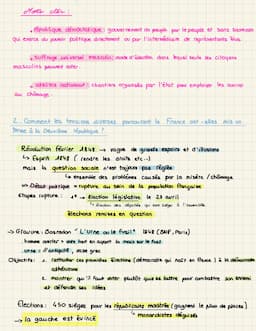 Mots clés :
. République démocratique : gouvernement du peuple par le peuple et sans distinction
qui exerce du pouvoir politique directement ou par l'intermédiaire de représentants élus.
. Suffrage universel masculin : mode d'élection dans lequel seuls les citoyens
masculins peuvent voter.
. Ateliers nationaux : chantiers organisés par l'état pour employer les ouvriers
au chômage.
2. Comment les tensions diverses parcourant la France ont-elles mis un
terme à la Deuxième République ?
Révolution février 1848 → vague de grands espoirs et d'illusions
↳ Esprit 1848 ( rendre les droits etc..)
mais la question sociale n'est toujours pas réglée
↳ ensemble des problèmes causés par la misère / chômage
⇒ Débat politique + rupture au sein de la population française
Etapes rupture : 1° → élection législative le 23 avril
↳ élection des députés qui vont siéger à l'assemblée
Elections remises en question
→ Gravure : Bosredon "L'urne ou le fusil" 1848 (BNF, Paris)
homme ouvrier → met la main sur le fusil
urne : l'antiquité, vase grec
Objectifs : 1. rattacher ces premières élections (démocratie qui naît en France ) à la démocratie
athénienne
2. montrer qu'il faut voter plutôt que se battre pour combattre son ennemi
et défendre ses idées
Elections : 450 sièges pour les républicains modérés (gagnent le plus de places)
→ la gauche est évincé
↳ monarchistes déguisés